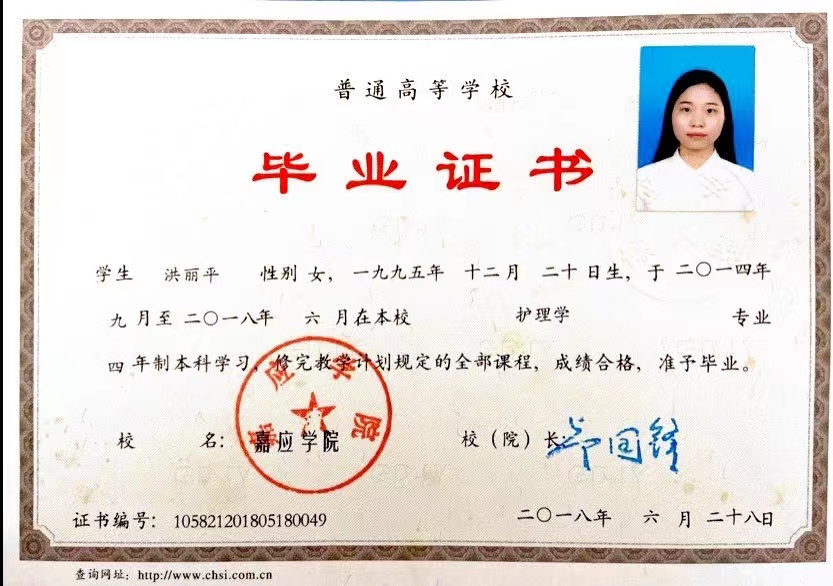 普通高等学校
毕业证书
学生 洪丽平 性别 女，一九九五年 十二月 二十 日生，于 二〇一四年
九 月至 二〇一八年 六 月在本校 护理学 专业
四 年制本科学习，修完教学计划规定的全部课程，成绩合格，准予毕业。
嘉应学院
校 名：嘉应学院 校（院）长：
证书编号：105821201805180049 二〇一八年 六 月 二十八日
查询网址：http://www.chsi.com.cn